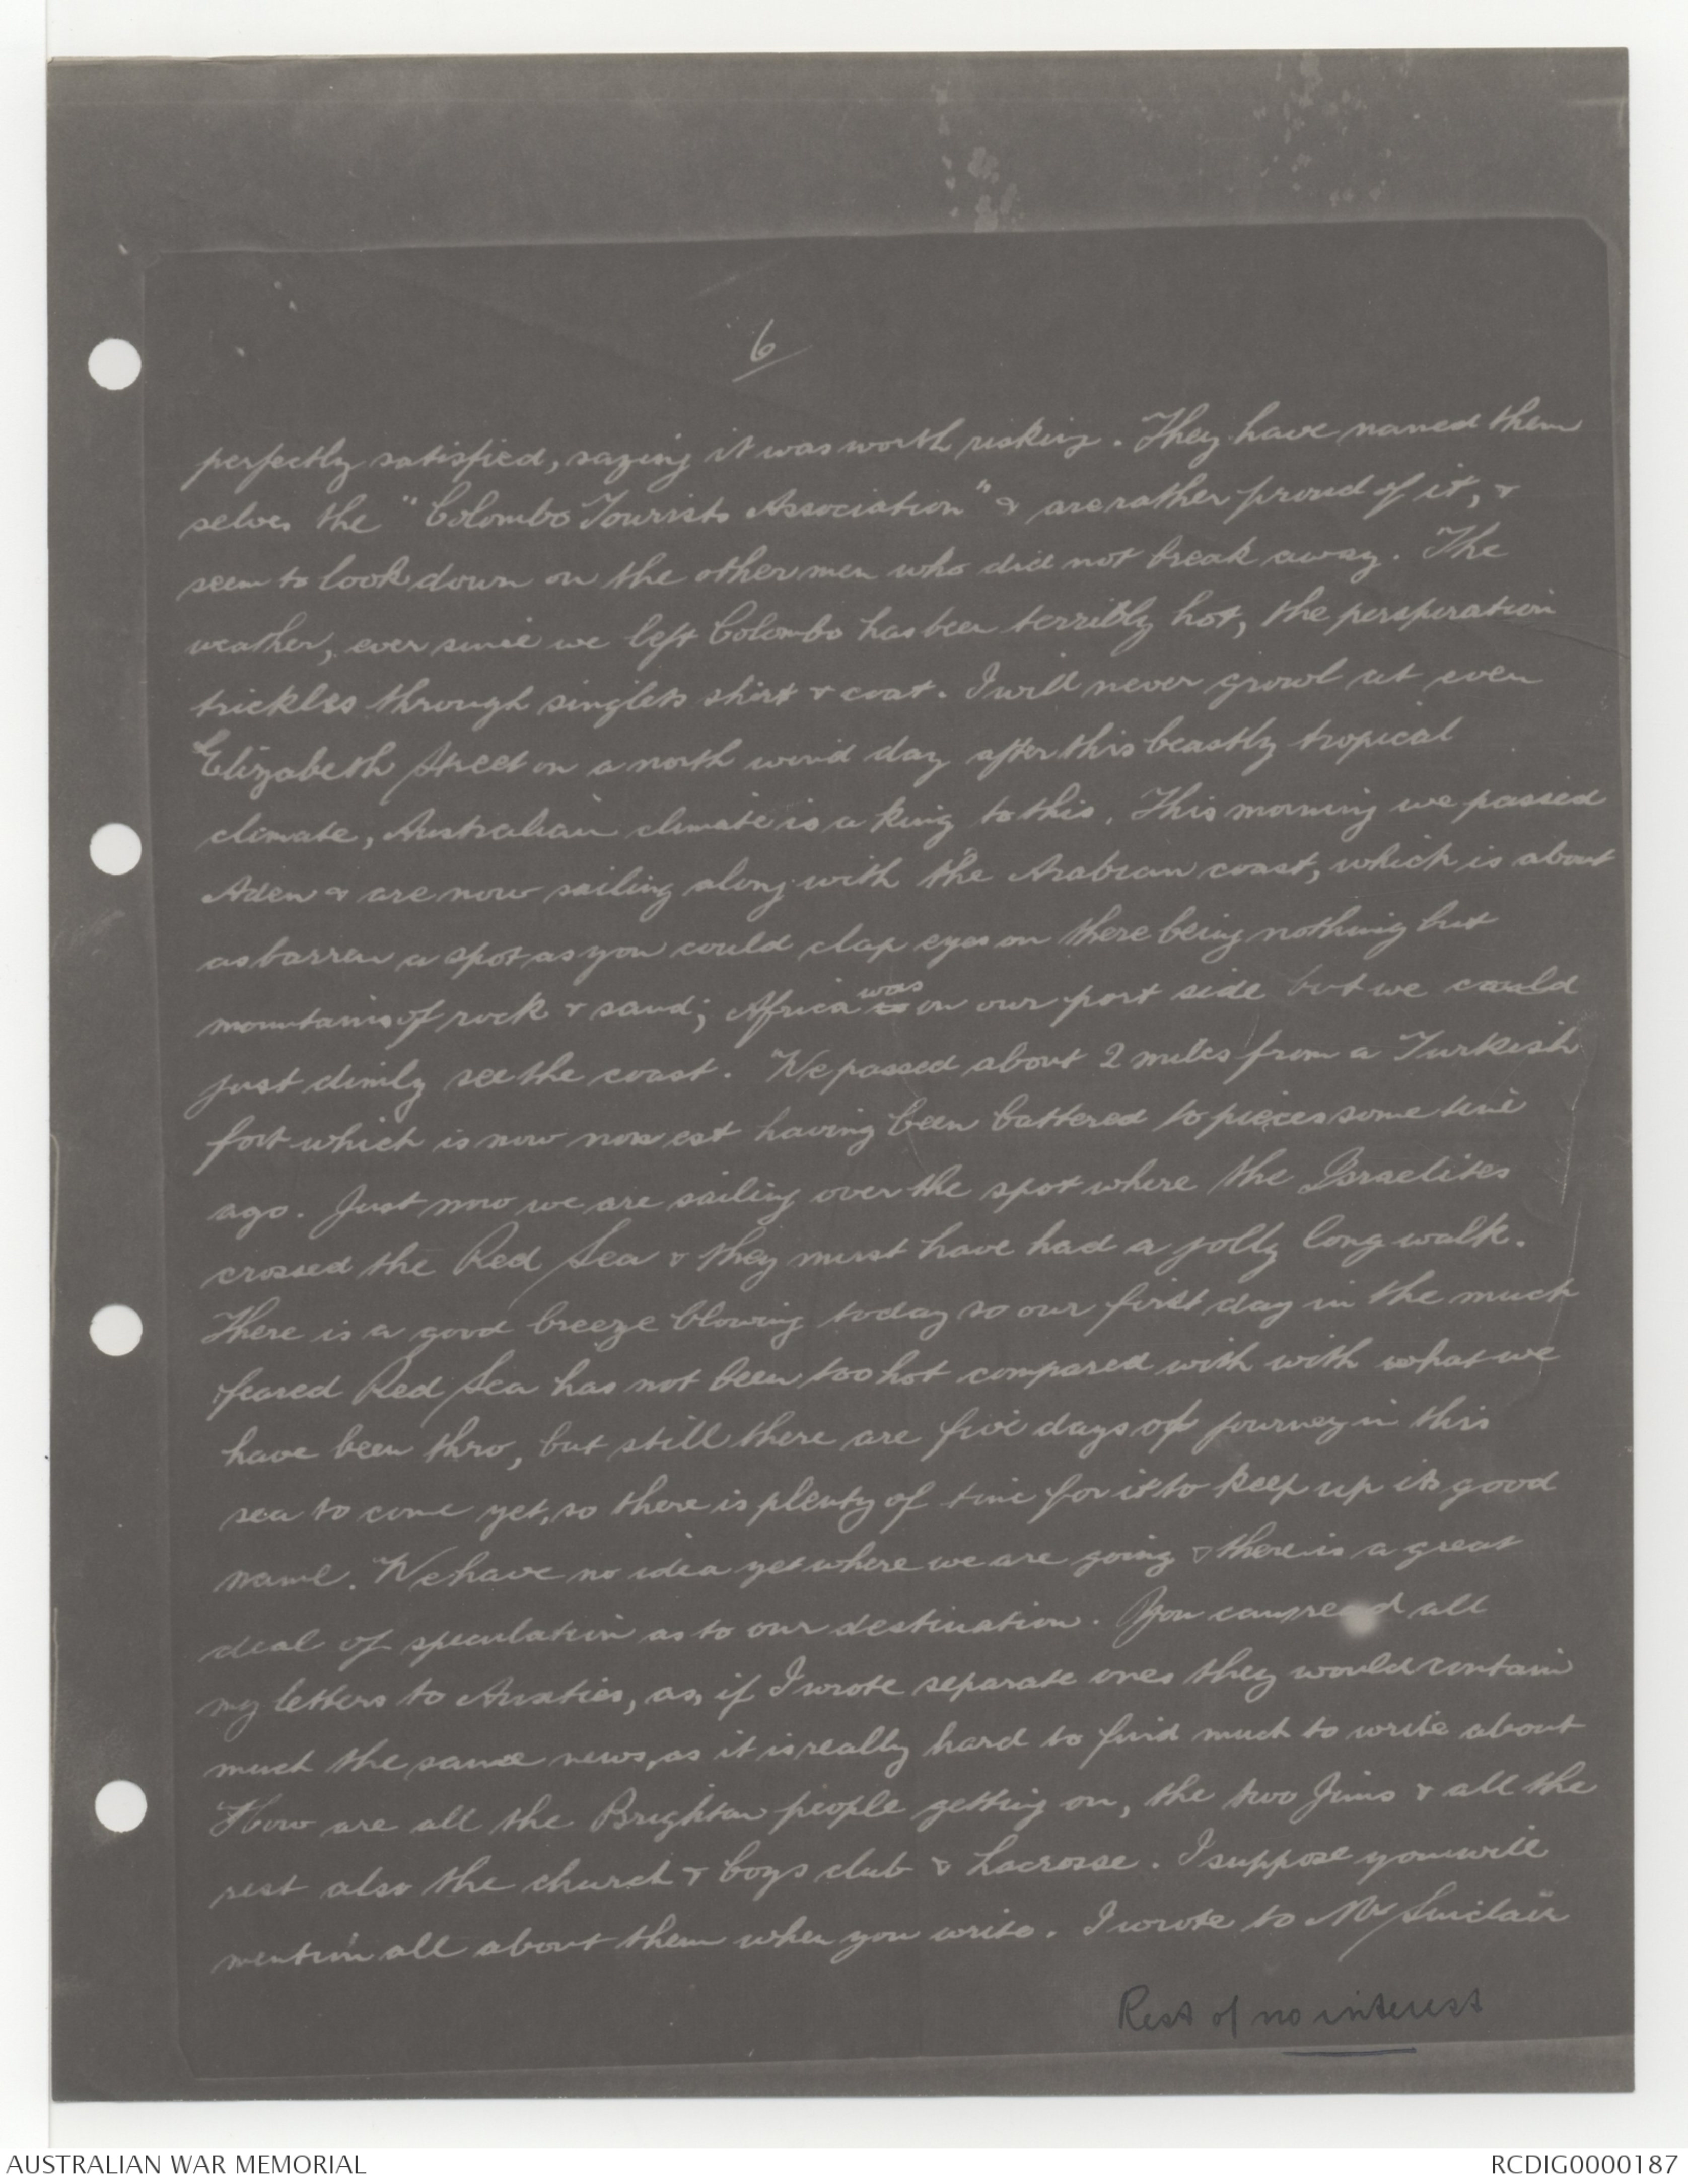 6
perfectly satisfied, saying it was worth risking. They have named them
selves the "Colombo Tourists Association" & are rather proud of it, &
seem to look down on the other men who did not break away. The
weather, ever since we left Colombo has been terribly hot, the perspiration
trickles through singlets shirt & coat. I will never growl at even
Elizabeth Street on a north wind day after this beastly tropical
climate, Australian climate is a king to this. This morning we passed
Aden & are now sailing along with the Arabian coast, which is about
as barren a spot as you could clap eyes on there being nothing but
mountains of rock & sand; Africa was on our port side but we could
just dimly see the coast. We passed about 2 miles from a Turkish
fort which is now non est having been battered to pieces some time
ago. Just now we are sailing over the spot where the Israelites
crossed the Red Sea & they must have had a jolly long walk.
There is a good breeze blowing today so our first day in the much
feared Red Sea has not been too hot compared with with what we
have been thro, but still there are five days of journey in this
sea to come yet, so there is plenty of time for it to keep up its good
name. We have no idea yet where we are going & there is a great
deal of speculation as to our destination. You can read all
my letters to Aunties, as, if I wrote separate ones they would contain
much the same news, as it is really hard to find much to write about
How are all the Brighton people getting on, the two Jims & all the
rest also the church & boys club & Lacrosse. I suppose you will
mention all about them when you write. I wrote to Mr Sinclair
Rest of no interest
AUSTRALIAN WAR MEMORIAL
RCDIG0000187